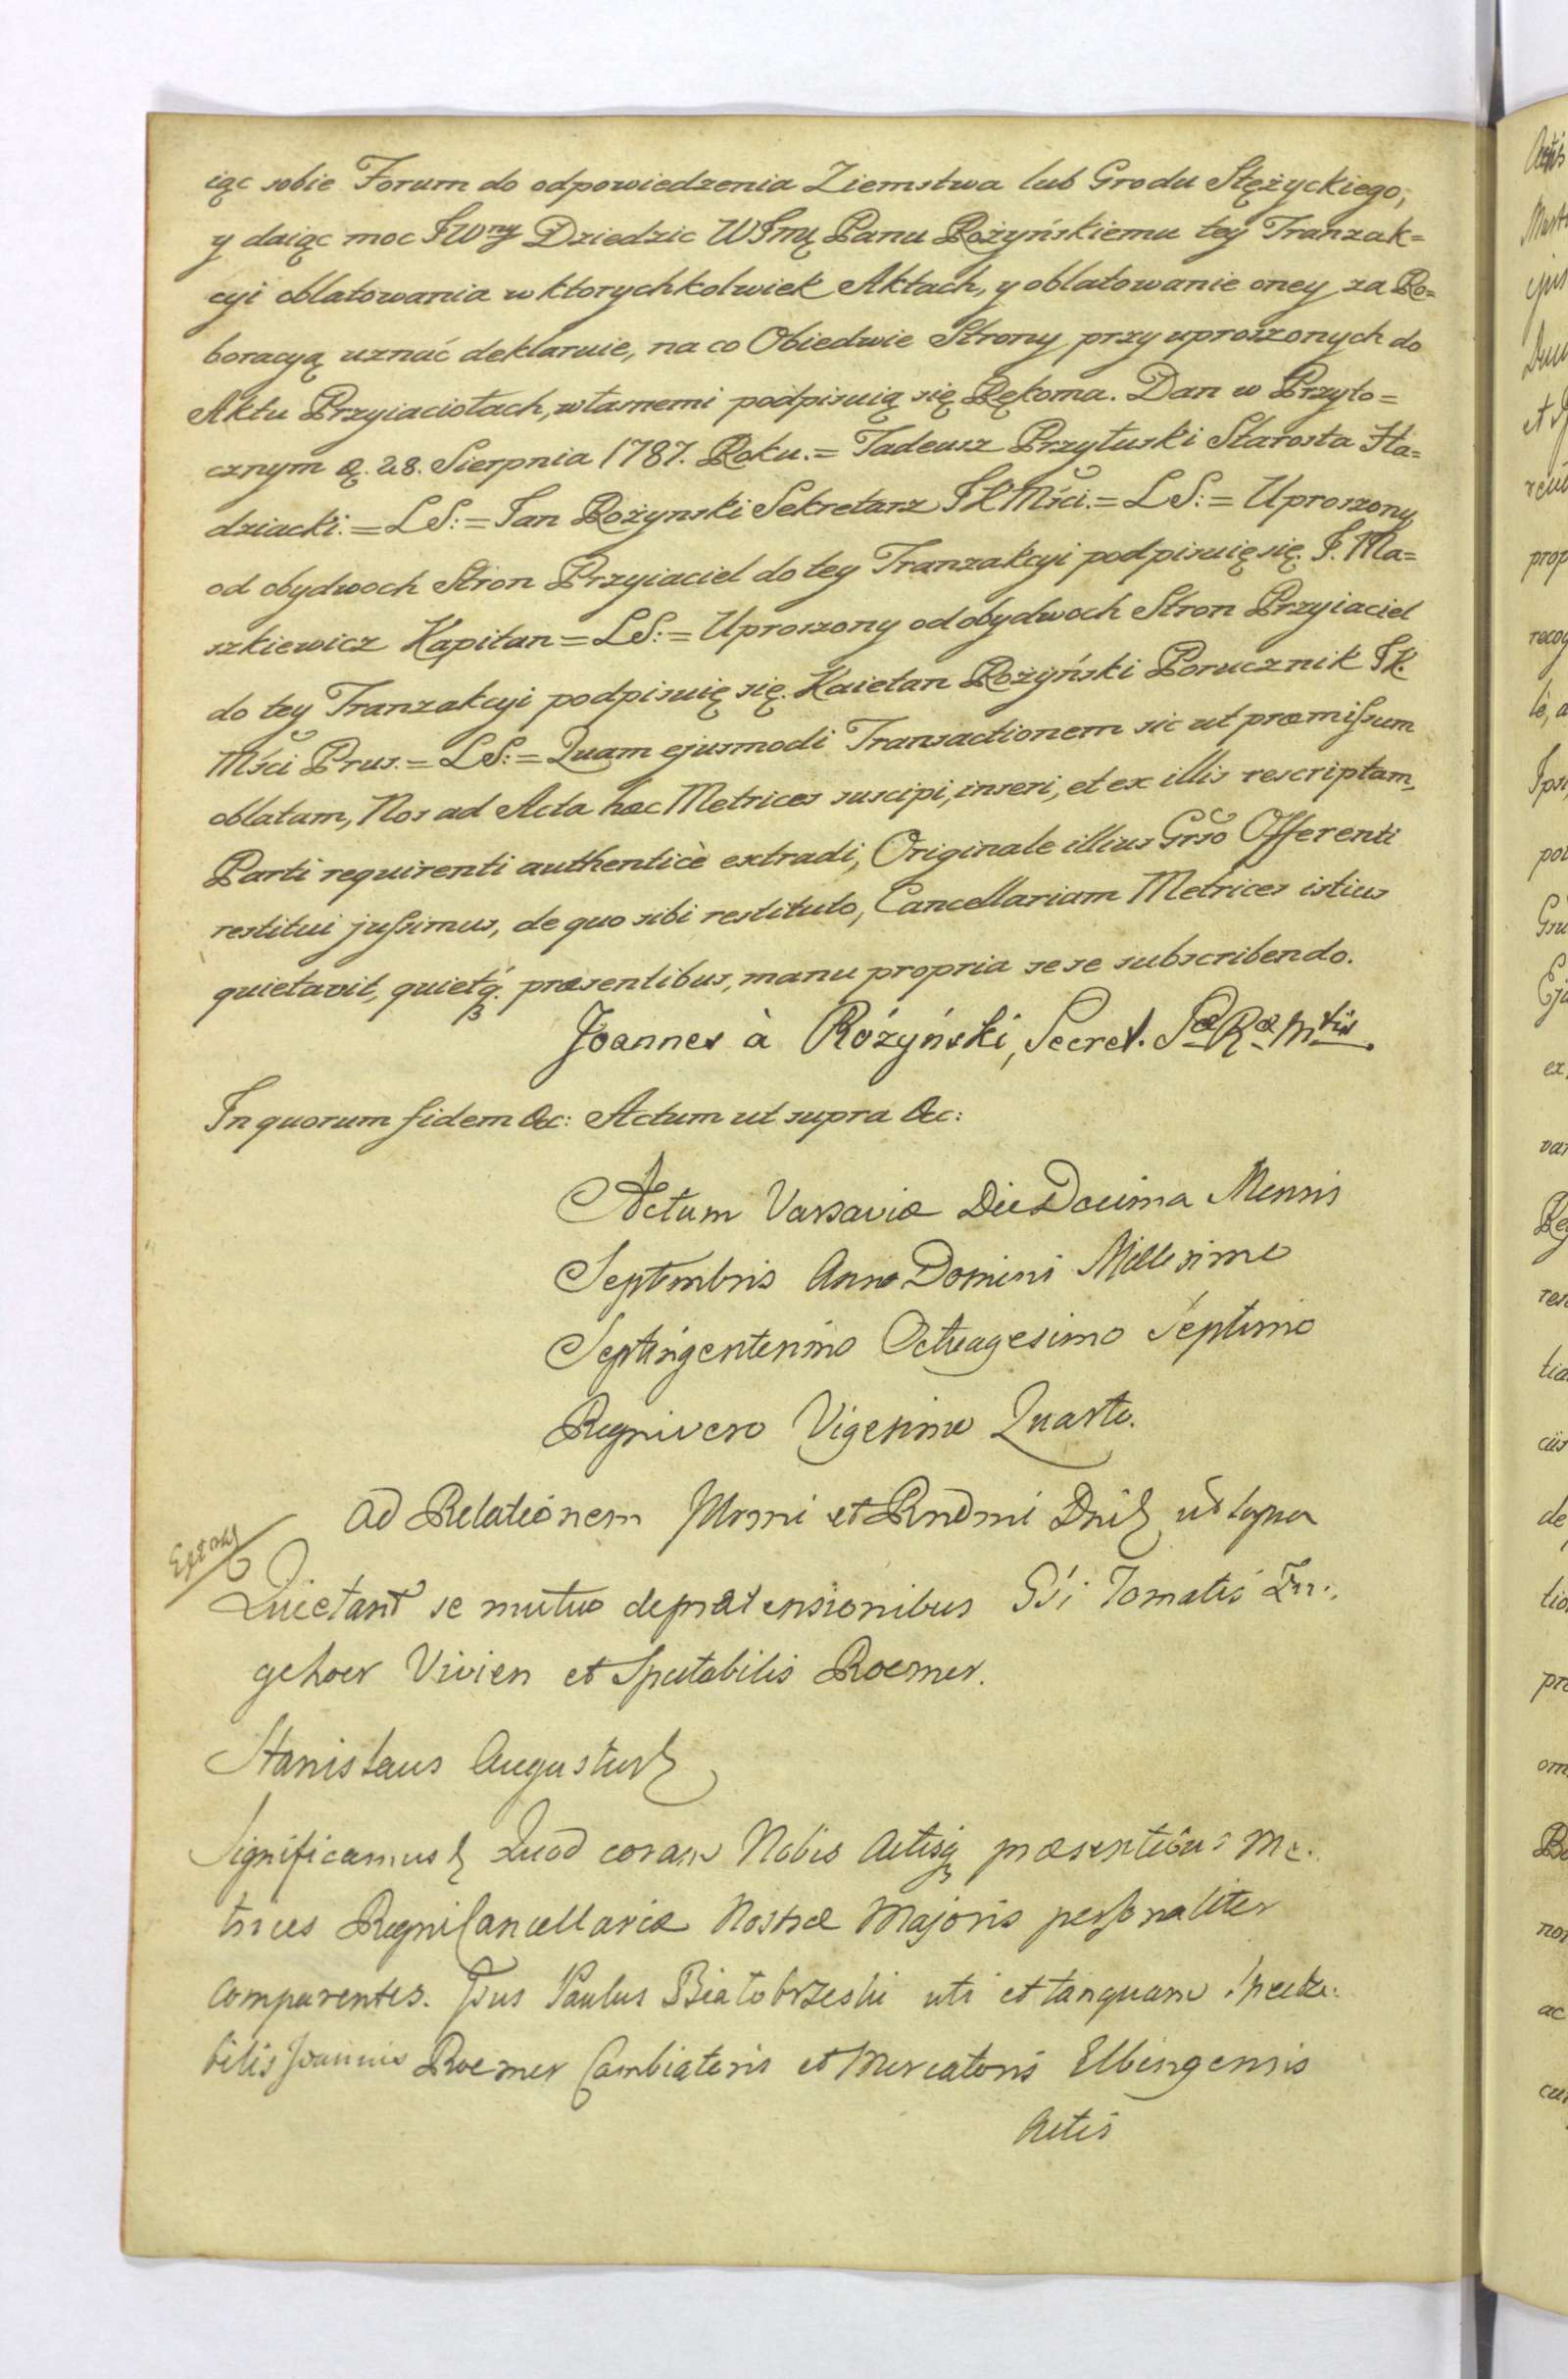 iąc sobie Forum do odpowiedzenia Ziemstwa lub Grodu Stężyckiego,
y daiąc moc JWny Dziedzic WJmę Panu Rożyńskiemu tey Tranzak=
cyi oblatowania w ktorychkolwiek Aktach, y oblatowanie oney za Ro=
boracyą uznać deklaruie, na co Obiedwie Strony przy uproszonych do
Aktu Przyiaciołach, własnemi podpisuią się Rękoma. Dan w Przyto=
cznym d. 28. Sierpnia 1787. Roku. = Tadeusz Przyłuski Starosta Ha=
dziacki. = LS: = Jan Rożynski Sekretarz JKMści. = LS: = Uproszony
od obydwoch Stron Przyiaciel do tey Tranzakcyi podpisuię się. J. Ma=
szkiewicz Kapitan = LS: = Uproszony od obydwoch Stron Przyiaciel
do tey Tranzakcyi podpisuię się. Kaietan Rożyński Porucznik JK.
Mści Prus. = LS: = Quam ejusmodi Transactionem sic ut præmissum
oblatam, Nos ad Acta hæc Metrices suscipi, inseri, et ex illis rescriptam,
Parti requirenti authenticè extradi, Originale illius Grso Offerenti
restitui jussimus, de quo sibi restituto, Cancellariam Metrices istius
quietavit, quietq. præsentibus, manu propria sese subscribendo.
Joannes à Różyński, Secret. Sæ Ræ Mtis.
In quorum fidem &c: Actum ut supra &c:
Actum Varsaviæ Die Decima Mensis
Septembris Anno Domini Millesimo
Septingentesimo Octuagesimo Septimo
Regni vero Vigesimo Quarto.
Ad Relationem Illrmi et Rndmi Dni ut supra
Quietant se mutuo de prætensionibus Gsi Tomatis
gehoer Vivien et Spectabilis Roemer.
Stanislaus Augustus
Significamus Quod coram Nobis Actisq præsentibus Me.
trices Regni Cancellariæ Nostræ Majoris personaliter
comparentes. Paulus Białobrzeski uti et tanquam specta.
bilis Joannis Roemer Cambiatoris et Mercatoris Elbingensis
Actis